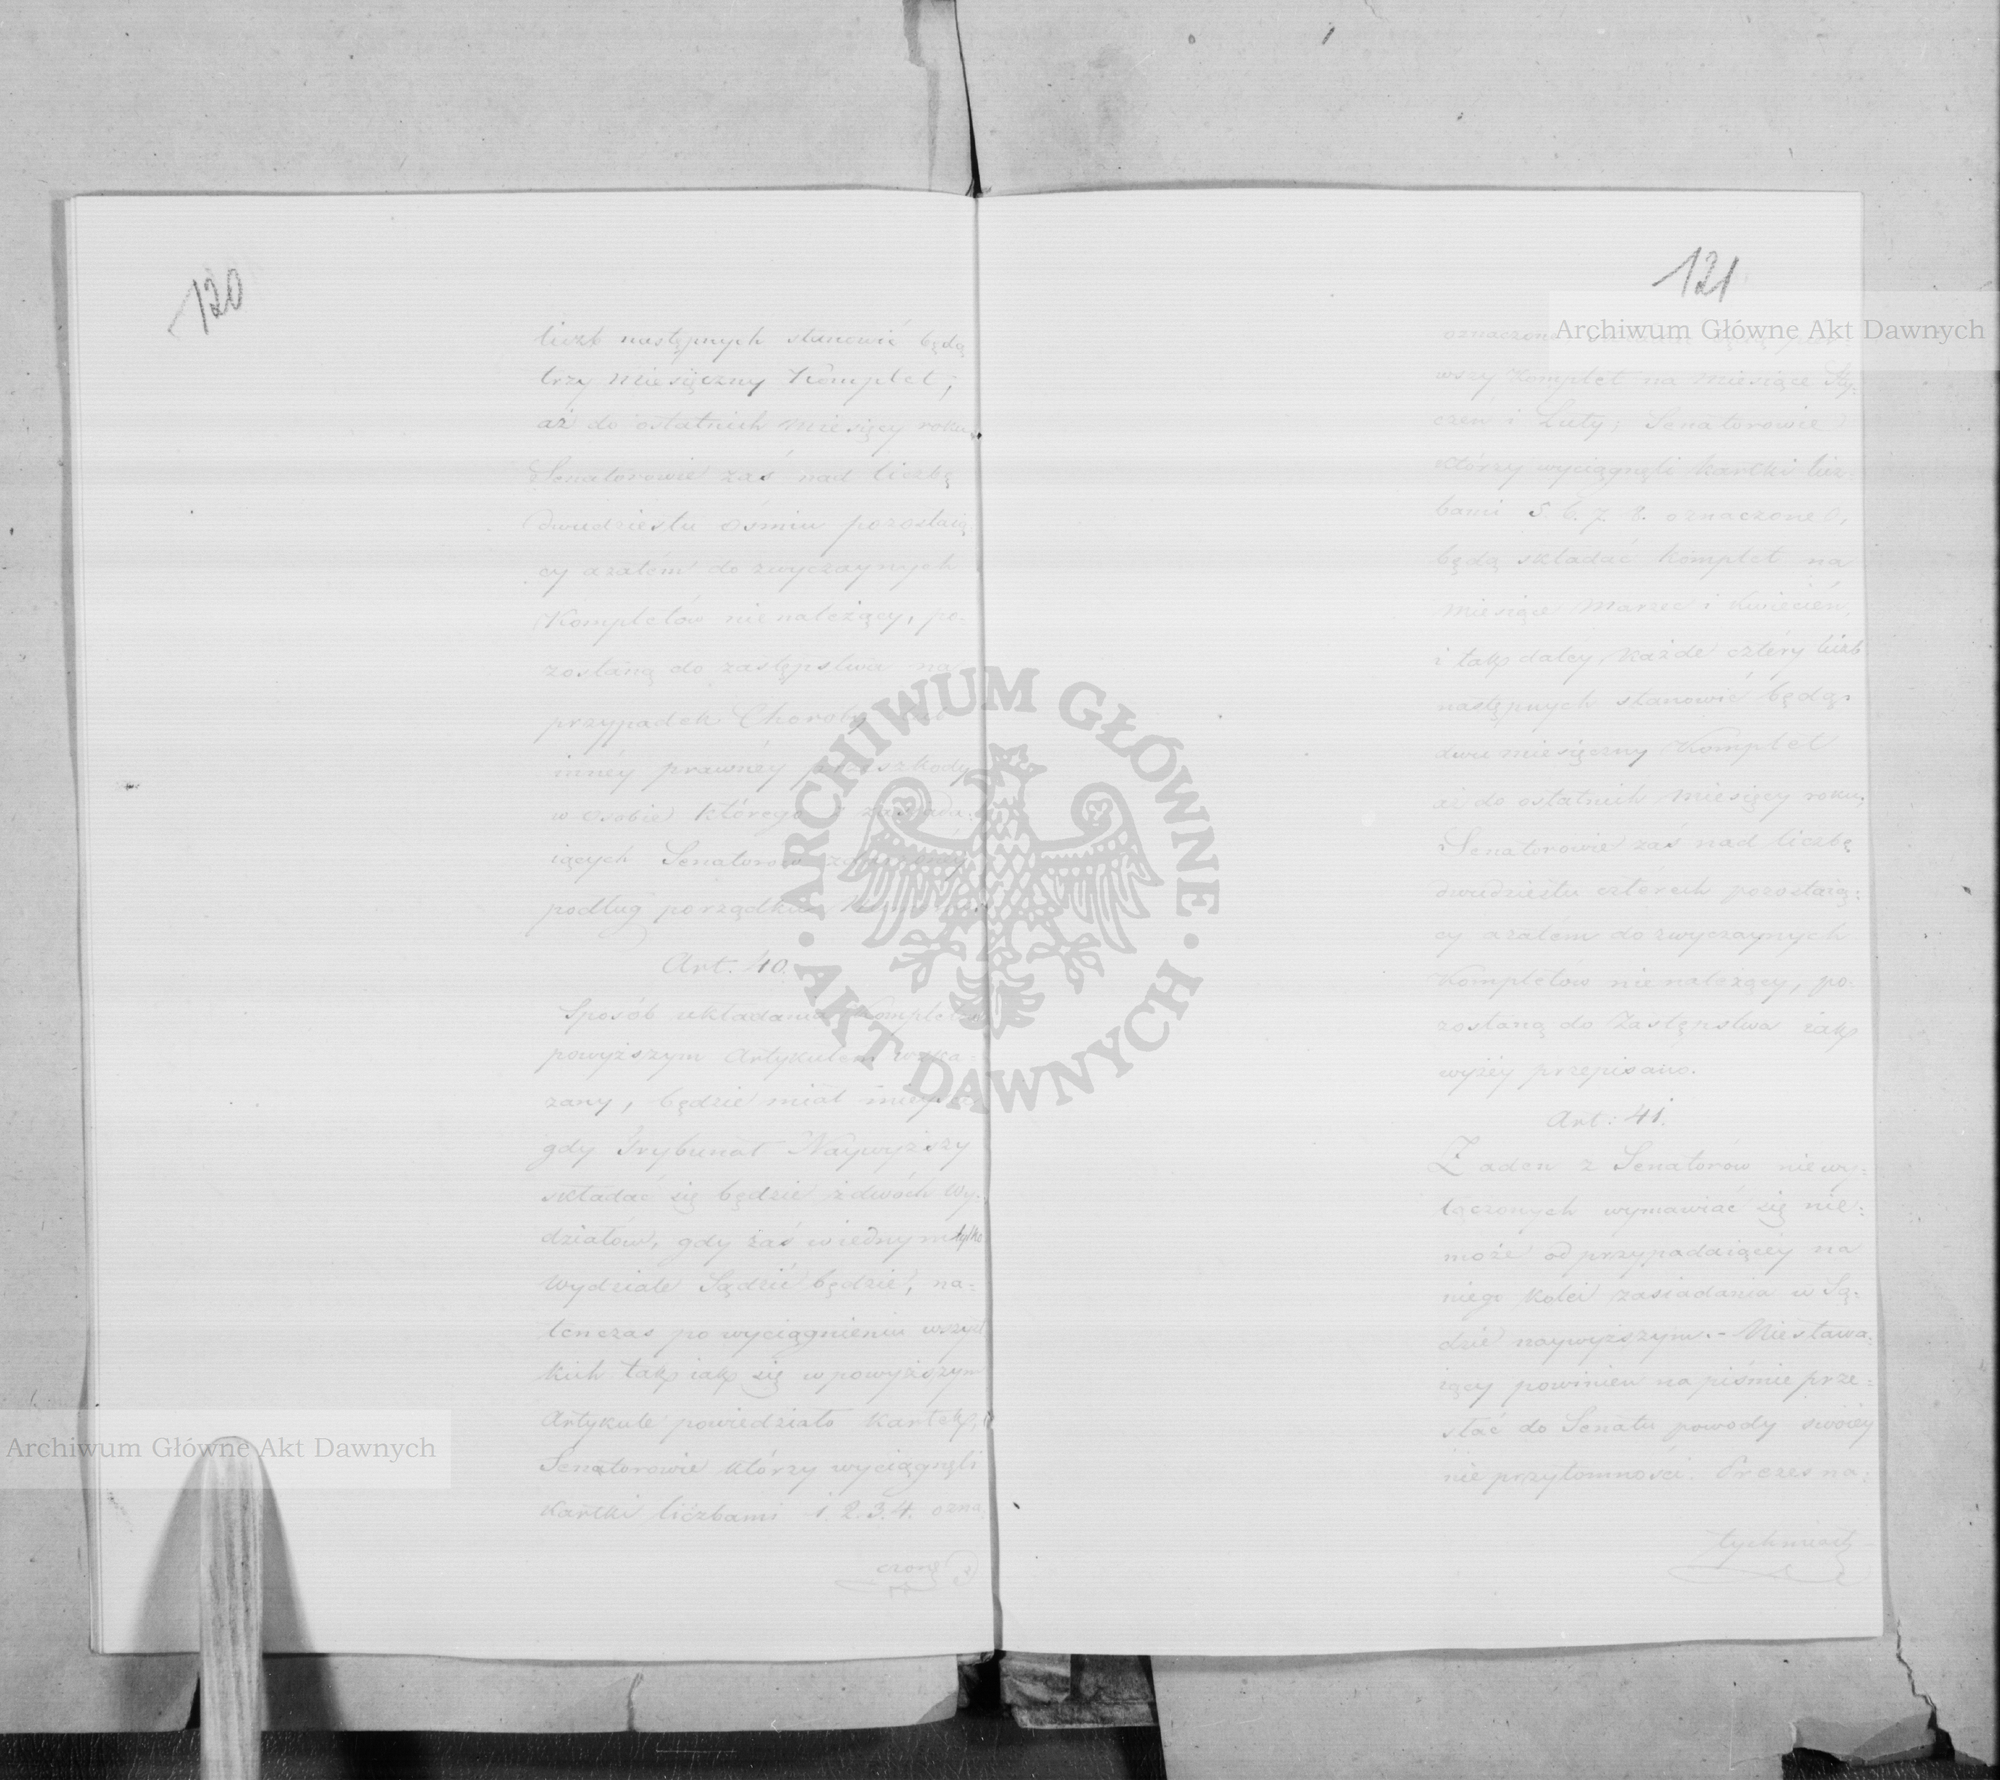 120
liczb następnych stanowić będą
trzy miesięczny Komplet;
aż do ostatnich miesięcy roku,
Senatorowie zaś nad liczbę
dwudziestu ośmiu pozostaią
cy azatém do zwyczaynych
Kompletów nienależący, po-
zostaną do zastępstwa na
przypadek Choroby lub
innéy prawnéy przeszkody
w osobie którego z zasiada-
iących Senatorów
podług porządku
Art. 40.
Sposób układania Kompletów
powyższym Artykułem wska-
zany, będzie miał mieysce
gdy Trybunał Naywyższy
składać się będzie zdwóch Wy-
działów, gdy zaś wiednym tylko
Wydziale Sądzić będzie, na-
tenczas po wyciągnieniu wszyst
kich tak iak się w powyższym
Artykule powiedziało Kartek,
Senatorowie którzy wyciągnęli
Kartki liczbami 1. 2. 3. 4. ozna-
czone
121
oznaczone
wszy Komplet na miesiące Sty-
czeń i Luty; Senatorowie
którzy wyciągnęli kartki licz-
bami 5. 6. 7. 8. oznaczone,
będą składać Komplet na
miesiące Marzec i Kwiecień,
i tak daley, każde cztéry liczb
następnych stanowić będą,
dwumiesięczny Komplet
aż do ostatnich miesięcy roku,
Senatorowie zaś nad liczbę
dwudziestu cztérech pozostaią-
cy azatém do zwyczaynych
Kompletów nienależący, po-
zostaną do Zastępstwa iak
wyżéy przepisano.
Art: 41.
Żaden z Senatorów niewy-
łączonych wymawiać się nie-
może od przypadaiącéy na
niego kolei zasiadania w Są-
dzie naywyższym. - Niestawa-
iący powinien na piśmie prze-
słać do Senatu powody swoiéy
nieprzytomności. Prezes na-
tychmiast
Archiwum Główne Akt Dawnych
Archiwum Główne Akt Dawnych
ARCHIWUM GŁÓWNE · AKT DAWNYCH ·